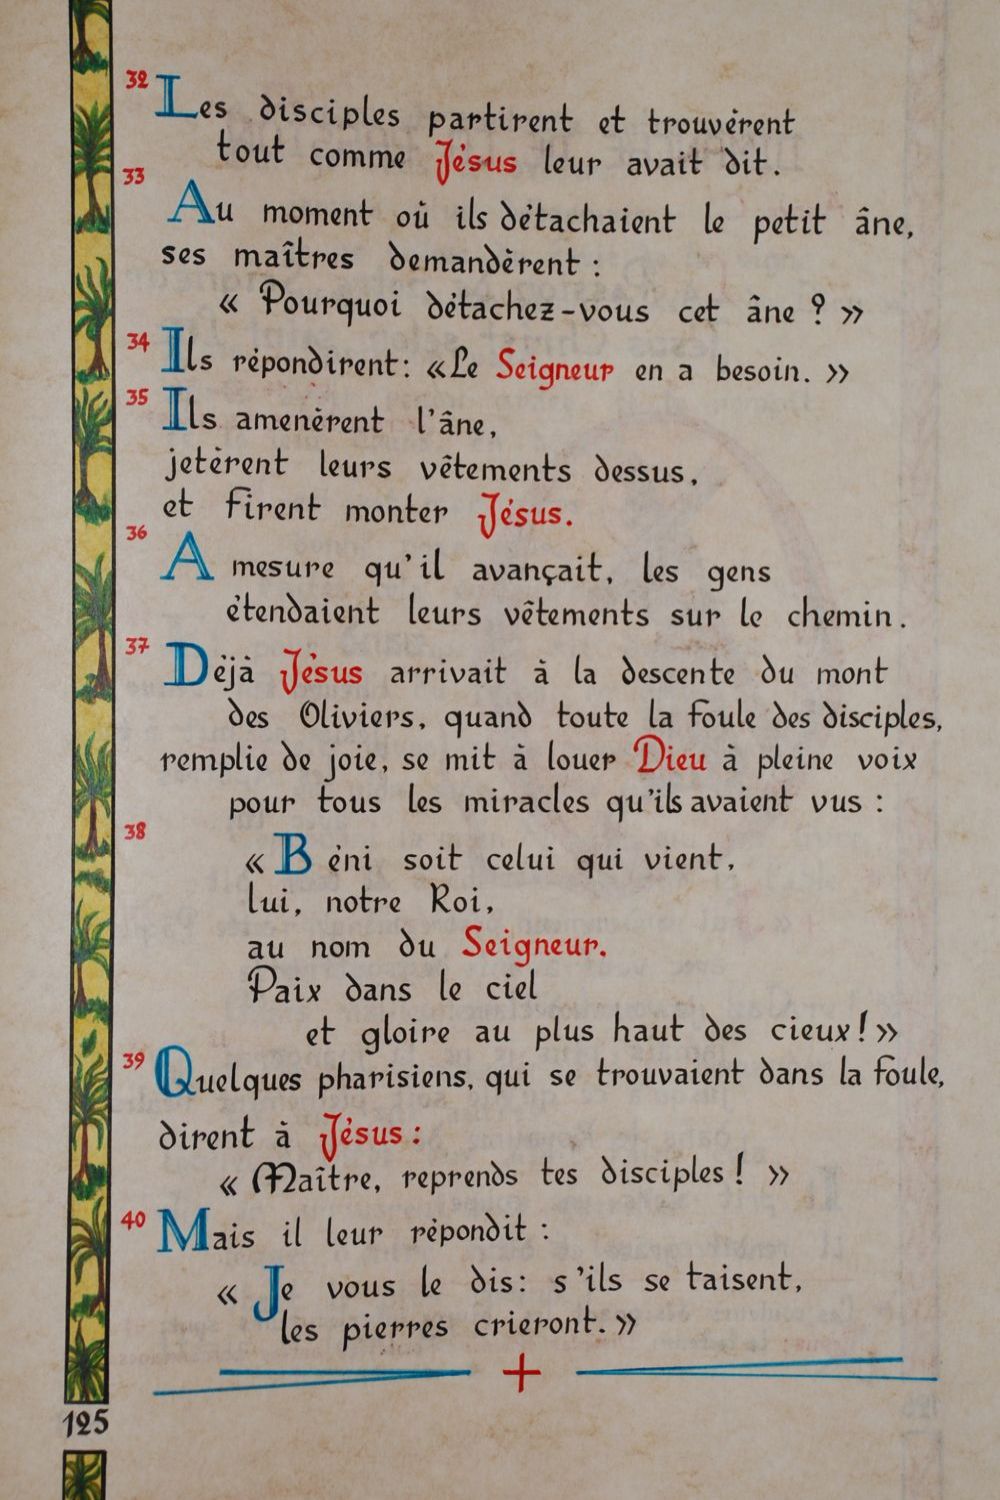 32 Les disciples partirent et trouvèrent
tout comme Jésus leur avait dit.
33
Au moment où ils détachaient le petit âne,
ses maîtres demandèrent :
« Pourquoi détachez-vous cet âne ? »
34 Ils répondirent : « Le Seigneur en a besoin. »
35 Ils amenèrent l'âne,
jetèrent leurs vêtements dessus,
et firent monter Jésus.
36
A mesure qu'il avançait, les gens
étendaient leurs vêtements sur le chemin.
37 Déjà Jésus arrivait à la descente du mont
des Oliviers, quand toute la foule des disciples,
remplie de joie, se mit à louer Dieu à pleine voix
pour tous les miracles qu'ils avaient vus :
38
« Béni soit celui qui vient,
lui, notre Roi,
au nom du Seigneur.
Paix dans le ciel
et gloire au plus haut des cieux ! »
39 Quelques pharisiens, qui se trouvaient dans la foule,
dirent à Jésus :
« Maître, reprends tes disciples ! »
40 Mais il leur répondit :
« Je vous le dis : s'ils se taisent,
les pierres crieront. »
125